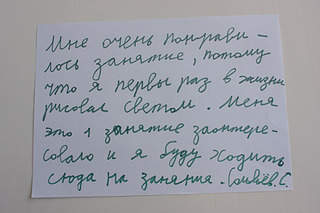 Мне очень понрави-
лось занятие, потому
что я первы раз в жизни
рисовал светом. Меня
это 1 занятие заэнтере-
совало и я буду ходить
сюда на занятия. Соловьёв.С.